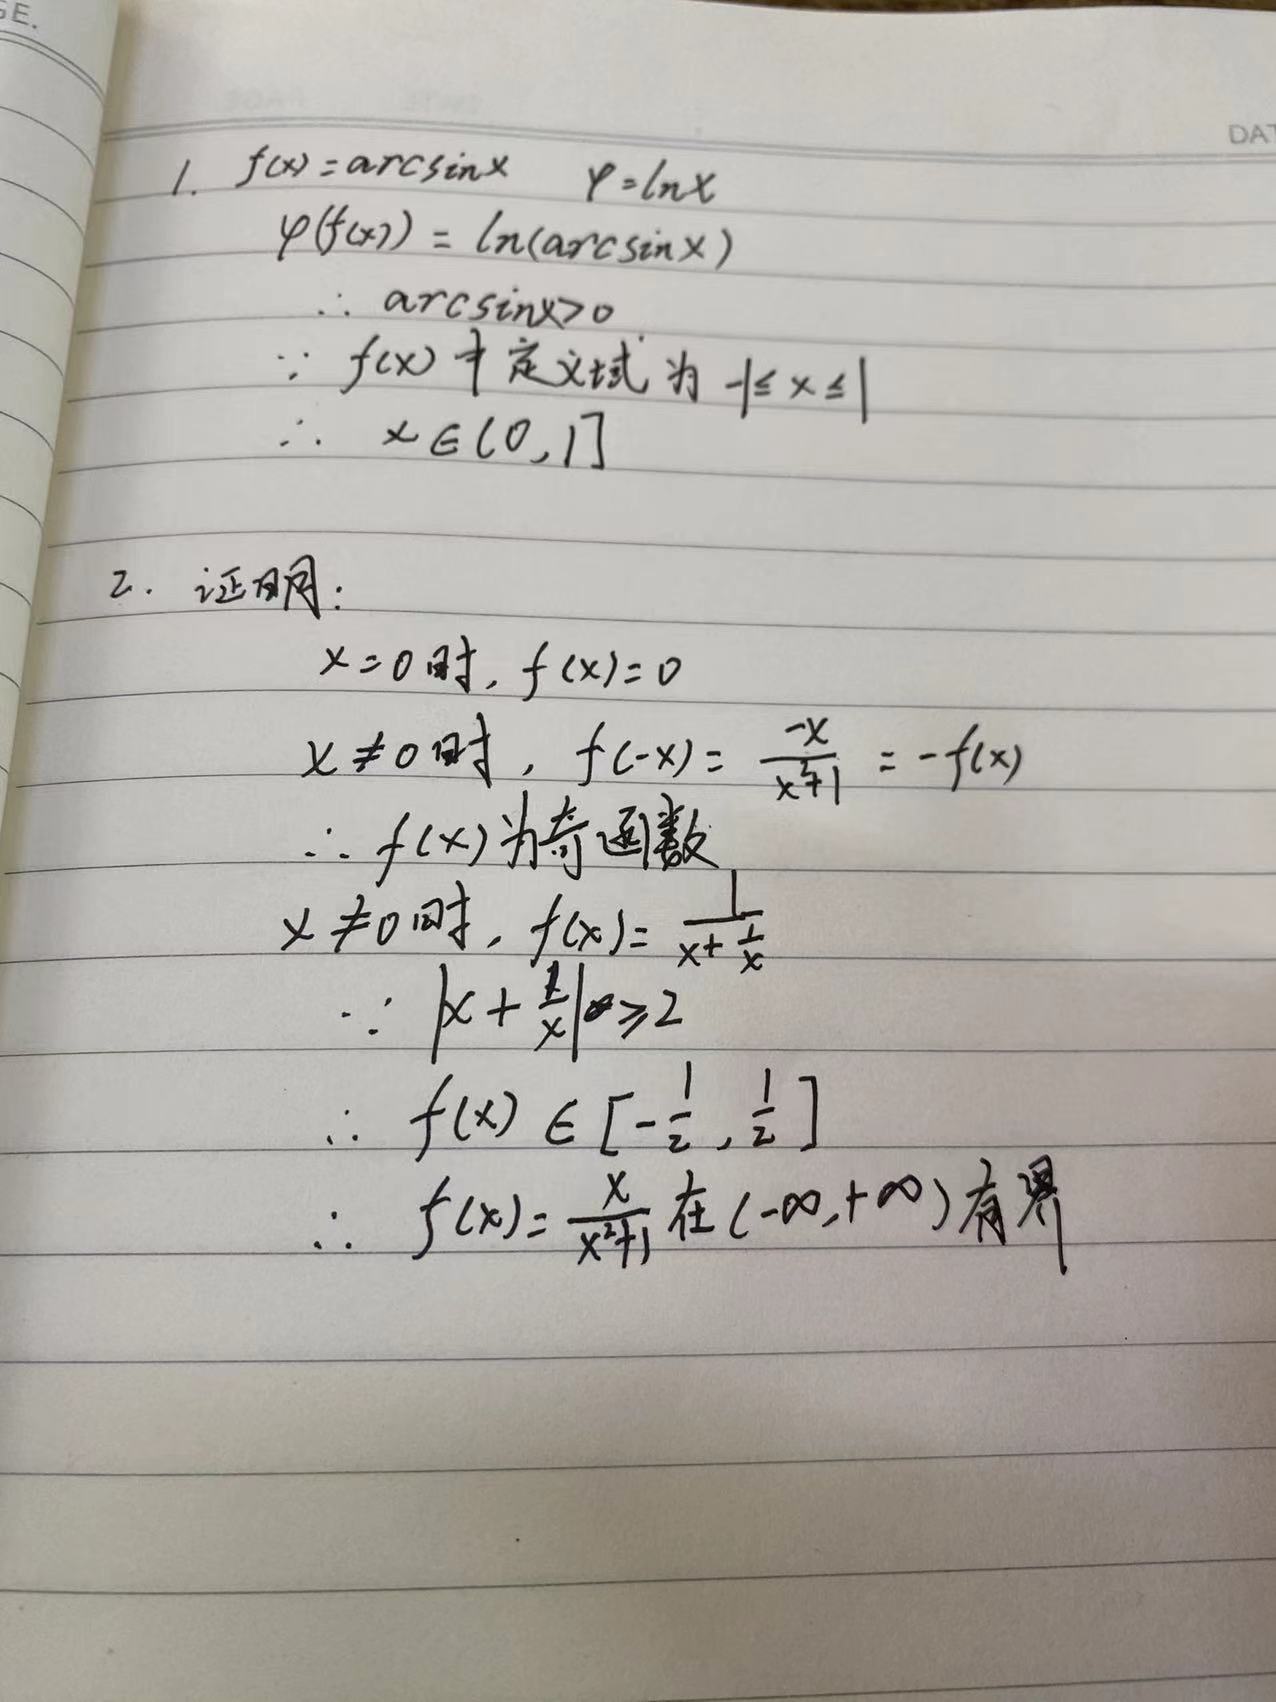 GE.
DAT
1. f(x)=arcsinx φ=lnx
φ(f(x))=ln(arcsinx)
∴ arcsinx>0
∵ f(x)中定义域为-1≤x≤1
∴ x∈(0,1]
2. 证明:
x=0时, f(x)=0
x≠0时, f(-x)=-x/(x²+1)=-f(x)
∴ f(x)为奇函数
x≠0时, f(x)=1/(x+1/x)
∵ |x+1/x|≥2
∴ f(x)∈[-1/2,1/2]
∴ f(x)=x/(x²+1)在(-∞,+∞)有界